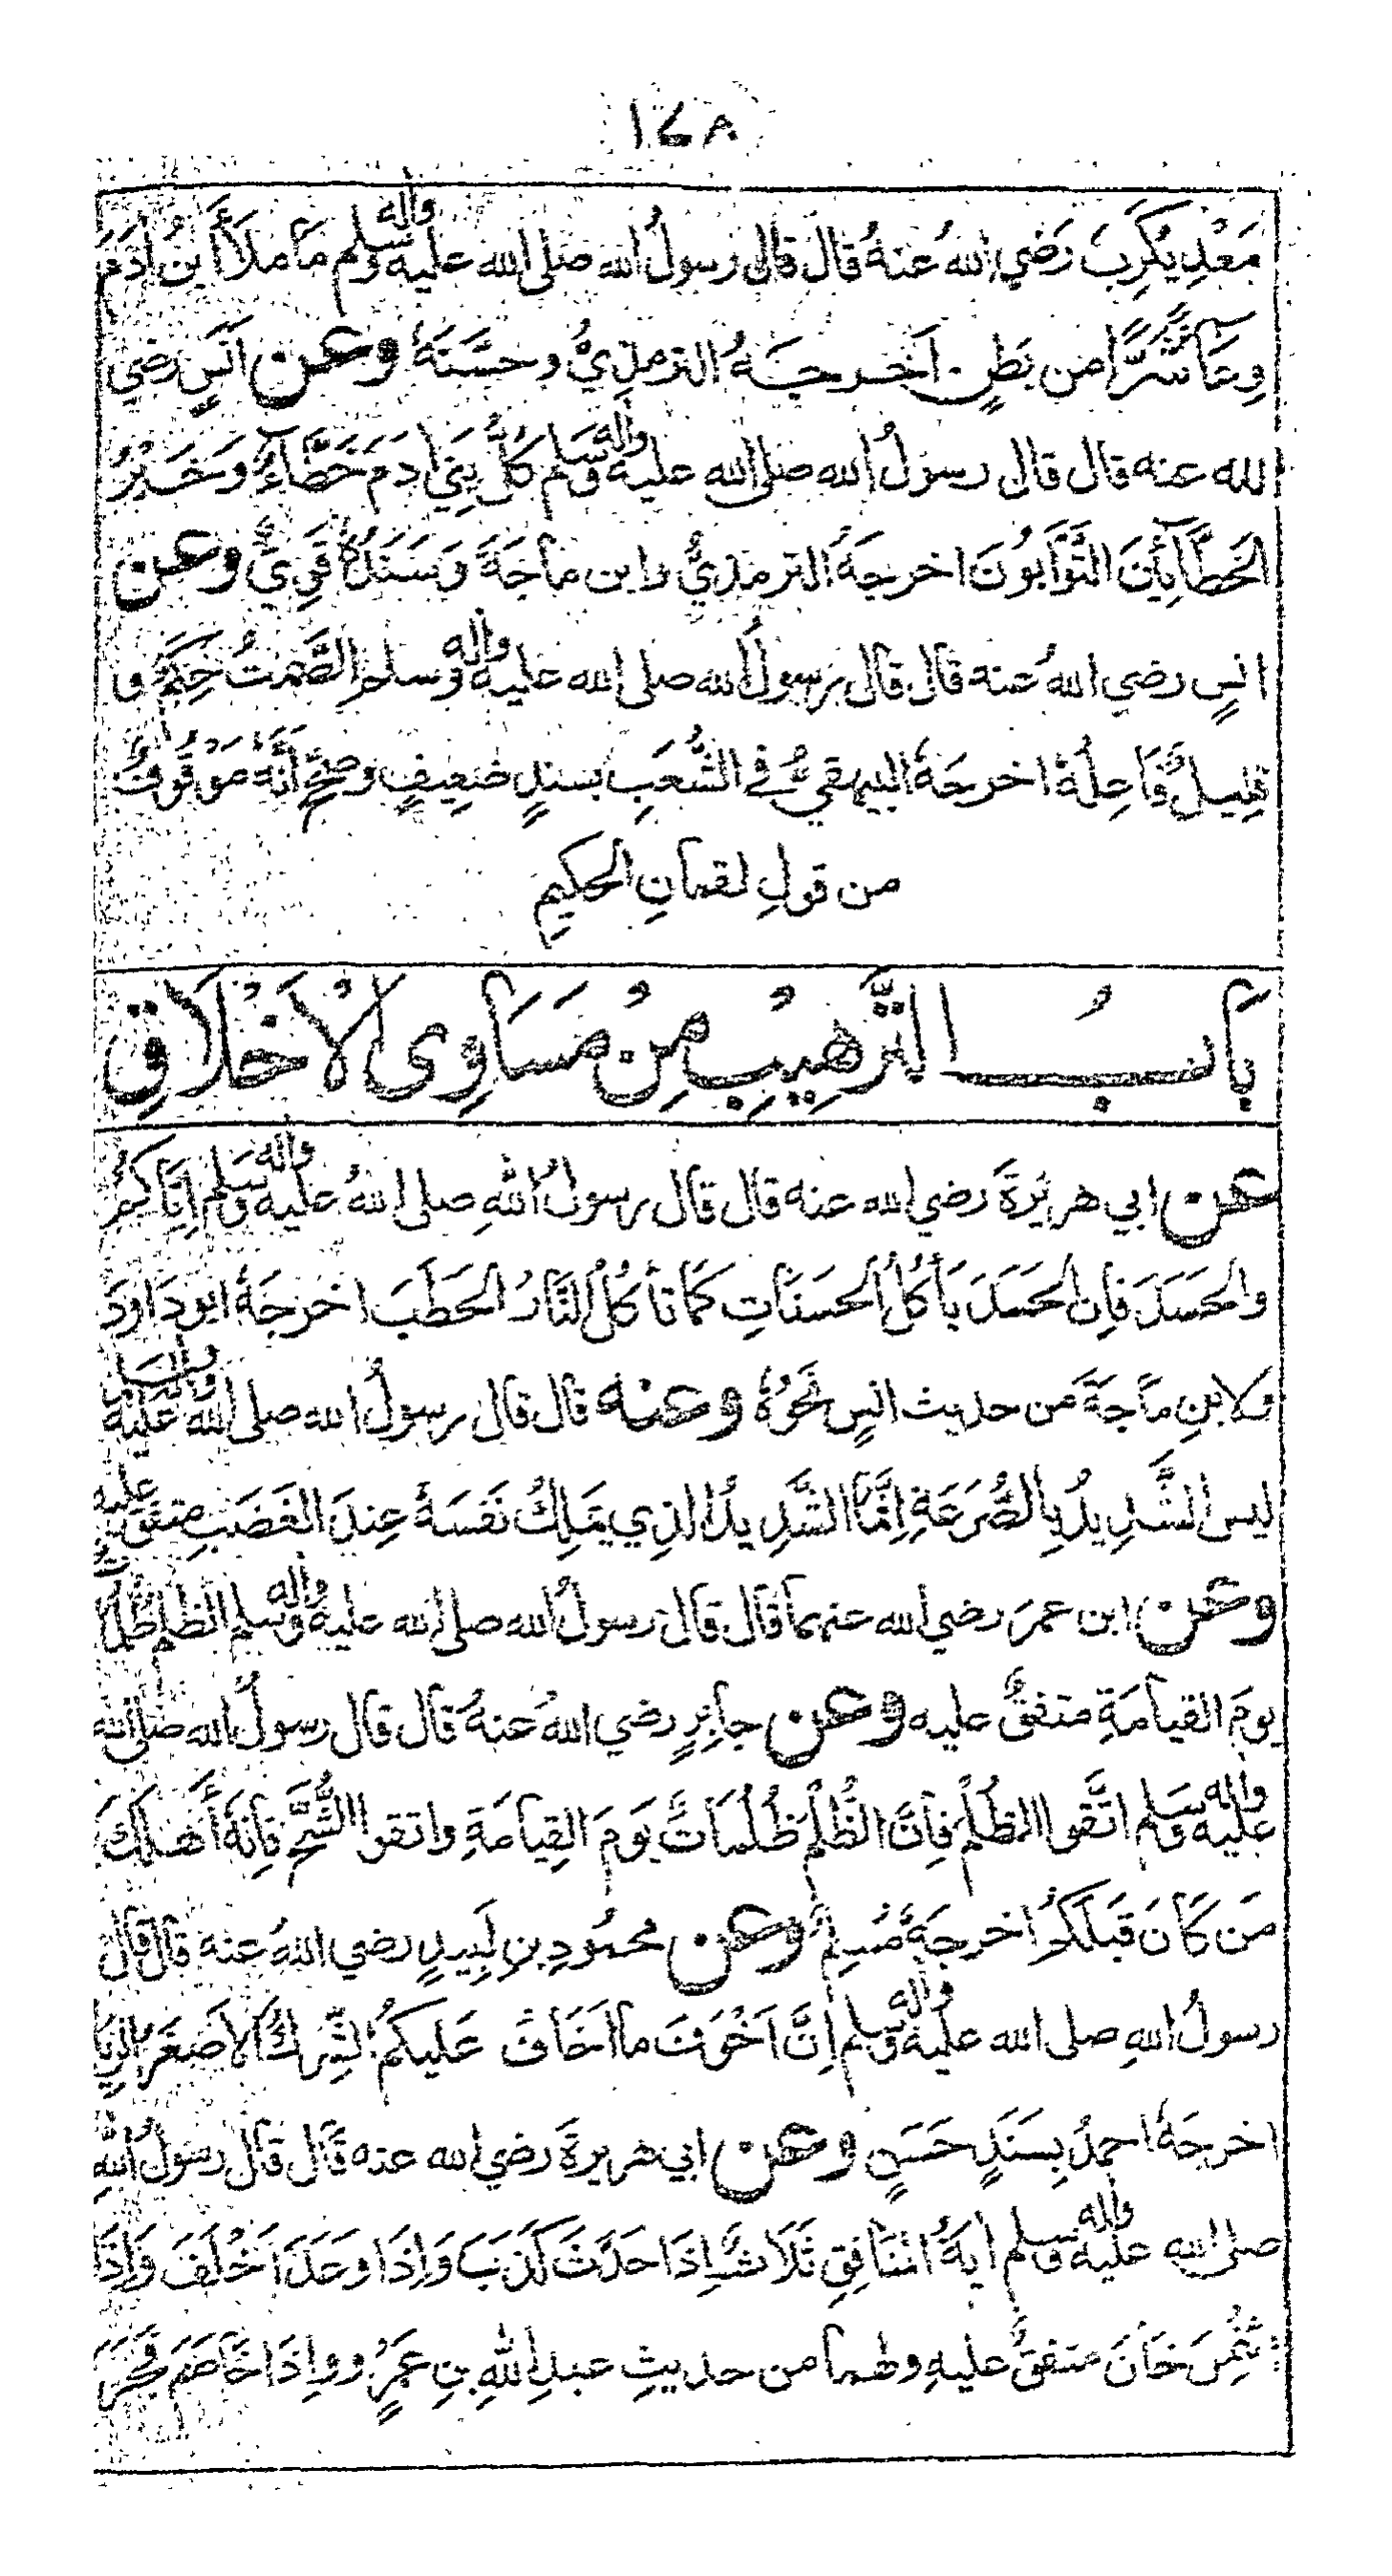 ١٤٨
مَعْدِيكَرِبَ رَضي اللهُ عنهُ قال قال رسولُ الله صلى الله عليه وآله وسلم مَا مَلَأَ ابنُ أدَمَ
وِعَآءً شَرًّا من بَطنٍ أخرجَهُ الترمذِيُّ وحسَّنَهُ وعن أنَسٍ رضي
الله عنه قال قال رسولُ الله صلى الله عليه وآله وسلم كُلُّ بَنِي ادَمَ خَطَّاءٌ وَخَيْرُ
الخَطَّآئِينَ التَّوَّابُونَ اخرجَهُ الترمذيُّ وابن ماجَةَ وَسَنَدُهُ قَوِيٌّ وعن
انسٍ رضي اللهُ عنه قال قال رسولُ الله صلى الله عليه وآله وسلم الصَّمتُ حِكَمٌ و
قليلٌ فَاعِلُهُ اخرجَهُ البيهقيُّ في الشُّعَبِ بسندٍ ضَعِيفٍ وصَحَّحَ أَنَّهُ مَوْقُوفٌ
من قولِ لقمانِ الحكيمِ
بَابُ التَّرْهِيبِ مِنْ مَسَاوِى الْأَخْلَاقِ
عن ابي هريْرةَ رضي الله عنه قال قال رسولُ اللهِ صلى اللهُ عليه وآله وسلم إيَّاكُمْ
والحَسَدَ فإِن الحَسَدَ يَأْكُلُ الحسنَاتِ كَمَا تأكُلُ النَّارُ الحَطَبَ اخرَجَهُ ابو دَاودَ
ولابنِ مَاجَةَ من حديث انسٍ نحوُهُ وعنه قال قال رسولُ الله صلى الله عليه وآله وسلم
ليس الشَّدِيدُ بِالصُّرَعَةِ إِنَّمَا الشَّدِيدُ الذِي يَملِكُ نَفسَهُ عِندَ الغَضَبِ متفق عليه
وعن ابن عمرَ رضي الله عنهما قال قال رسولُ الله صلى الله عليه وآله وسلم الظلم ظُلُمَاتٌ
يومَ القيامَةِ متفقٌ عليه وعن جابِرٍ رضي اللهُ عنهُ قال قال رسولُ الله صلى الله
عليه وآله وسلم اتَّقوا الظلْمَ فإنَّ الظُّلْمَ ظُلُمَاتٌ يَومَ القِيامَةِ واتقوا الشُّحَّ فإنَّهُ أَهْلَكَ
مَن كَانَ قَبلَكُمْ اخرجَهُ مُسلِمٌ وعن محمُودِ بنِ لَبِيدٍ رضي اللهُ عنه قال قال
رسولُ اللهِ صلى الله عليه وآله وسلم إنَّ اَخْوَفَ ما اَخَافُ عَليكُمُ الشِّركُ الأَصْغَرُ الرِّيَا
اخرجَهُ احمدُ بِسَنَدٍ حَسَنٍ وعن ابي هريرةَ رضي الله عنه قال قال رسولُ اللهِ
صلى الله عليه وآله وسلم أيَةُ المُنَافِقِ ثَلَاثٌ إذَا حَدَّثَ كَذَبَ وَإذَا وعَدَ اَخْلَفَ وَإذَا
ئْتُمِنَ خَانَ متفقٌ عليهِ ولهما من حديثِ عبدِ اللهِ بنِ عمَرٍو وإذَا خَاصَمَ فَجَرَ